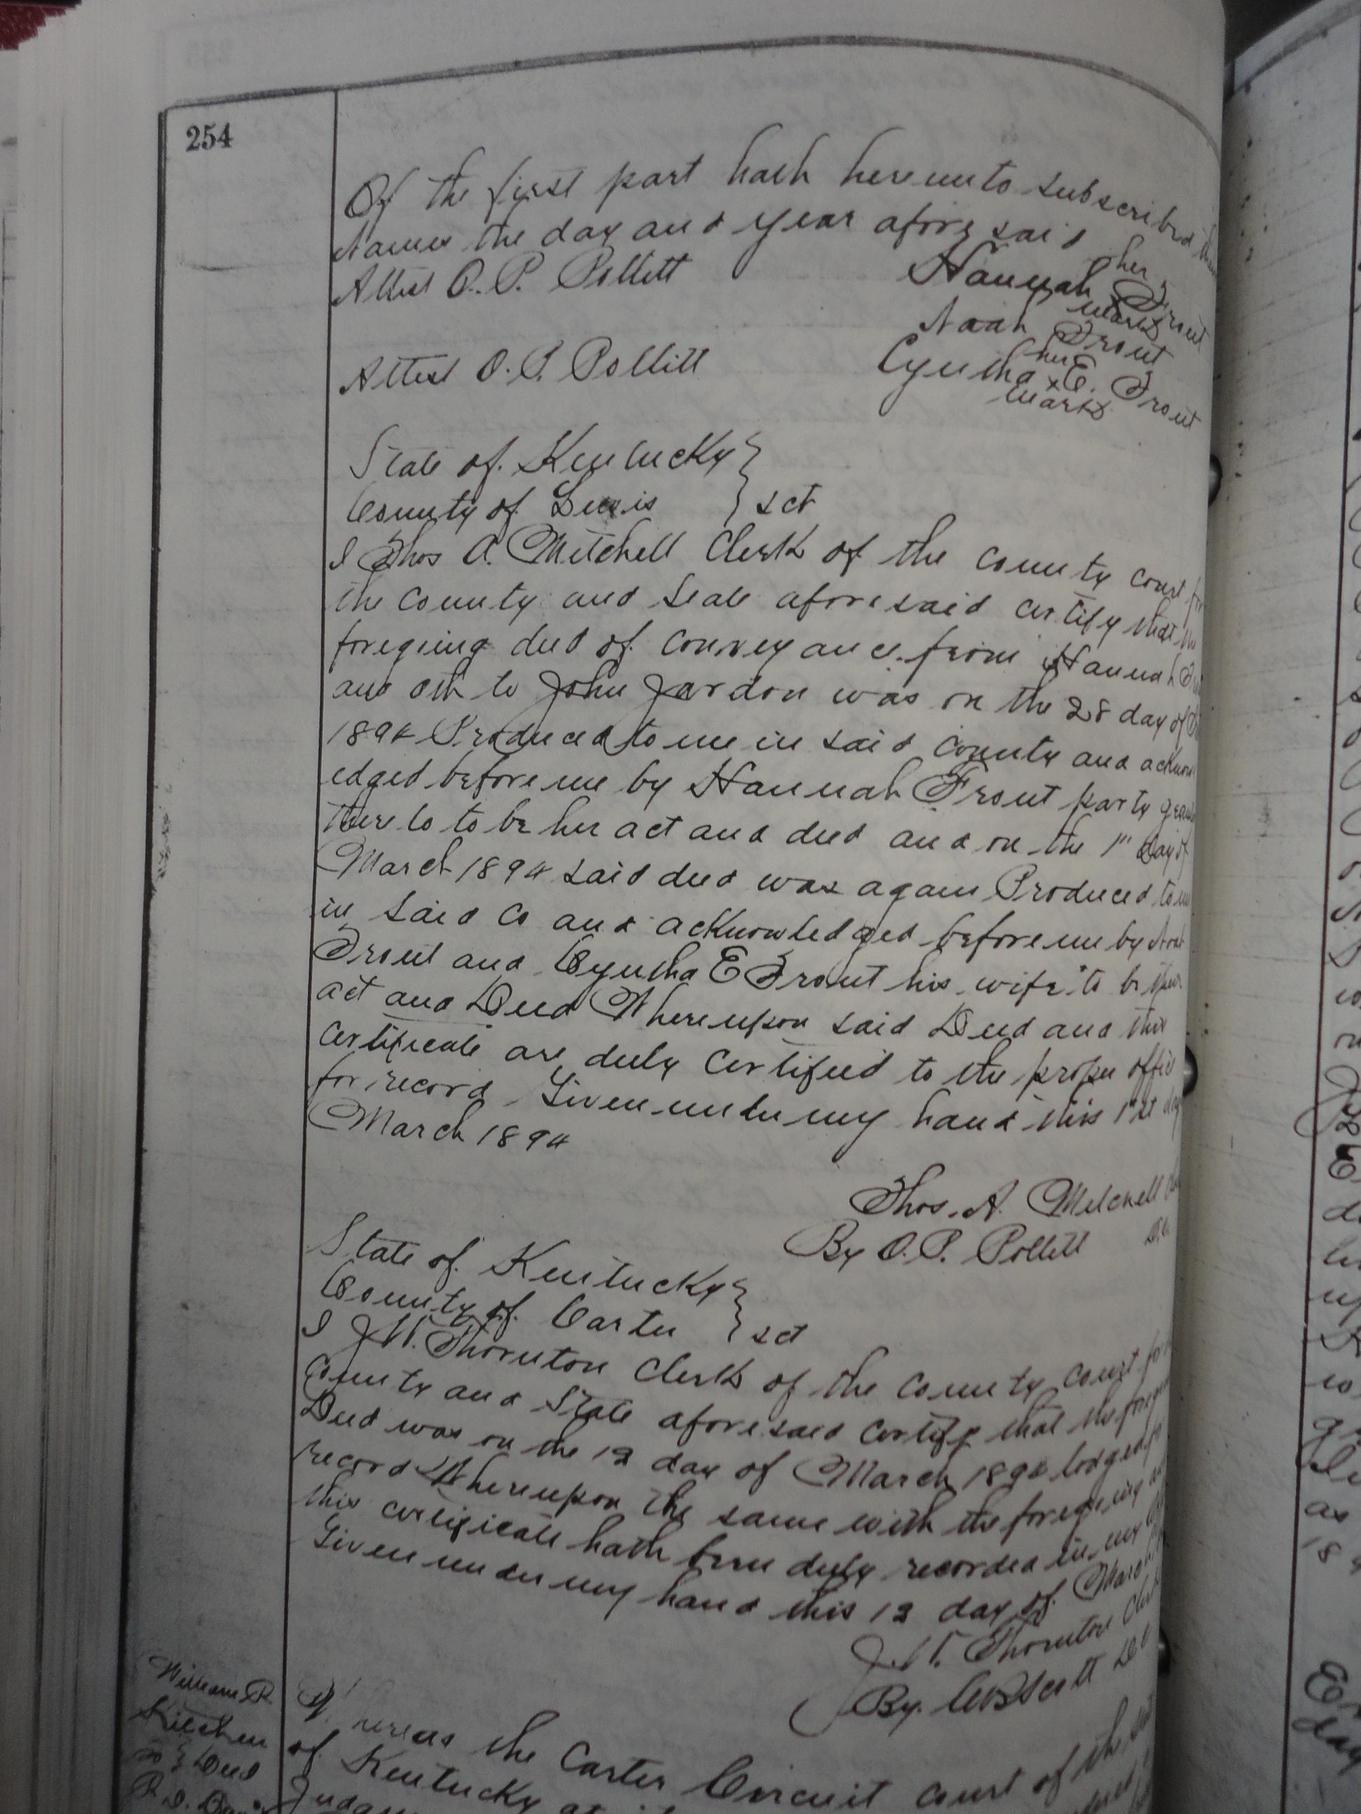 254
Of the first part hath hereunto subscribed their
Names the day and year afore said
Attest O. P. Pollitt
her
Hannah Trout
mark
Noah Trout
Attest O. P. Pollitt
her
Cyntha x E. Trout
mark
State of Kentucky }
County of Lewis } sct
I Thos A. Mitchell Clerk of the county court for
the county and State aforesaid certify that the
foregoing deed of conveyance from Hannah
and oth to John Jordon was on the 28 day of
1894 Produced to me in said county and acknowl
edged before me by Hannah Trout party
thereto to be her act and deed and on the 1" day of
March 1894 said deed was again Produced to me
in said Co and acknowledged before me by Noah
Trout and Cyntha E Trout his wife to be their
act and Deed Whereupon said Deed and this
certificate are duly certified to the proper office
for record. Given under my hand this 1st day
March 1894
Thos. A. Mitchell
By O. P. Pollitt
State of Kentucky }
County of Carter } sct
I J. W. Thornton Clerk of the county court for
county and State aforesaid certify that the
Deed was on the 12 day of March 1894 lodged for
record Whereupon the same with the foregoing and
this certificate hath been duly recorded in my
Given under my hand this 12 day of March
J. W. Thornton Clerk
By. Scott DC
William R
Kitchen
to } Deed
Whereas the Carter Circuit court of the
of Kentucky